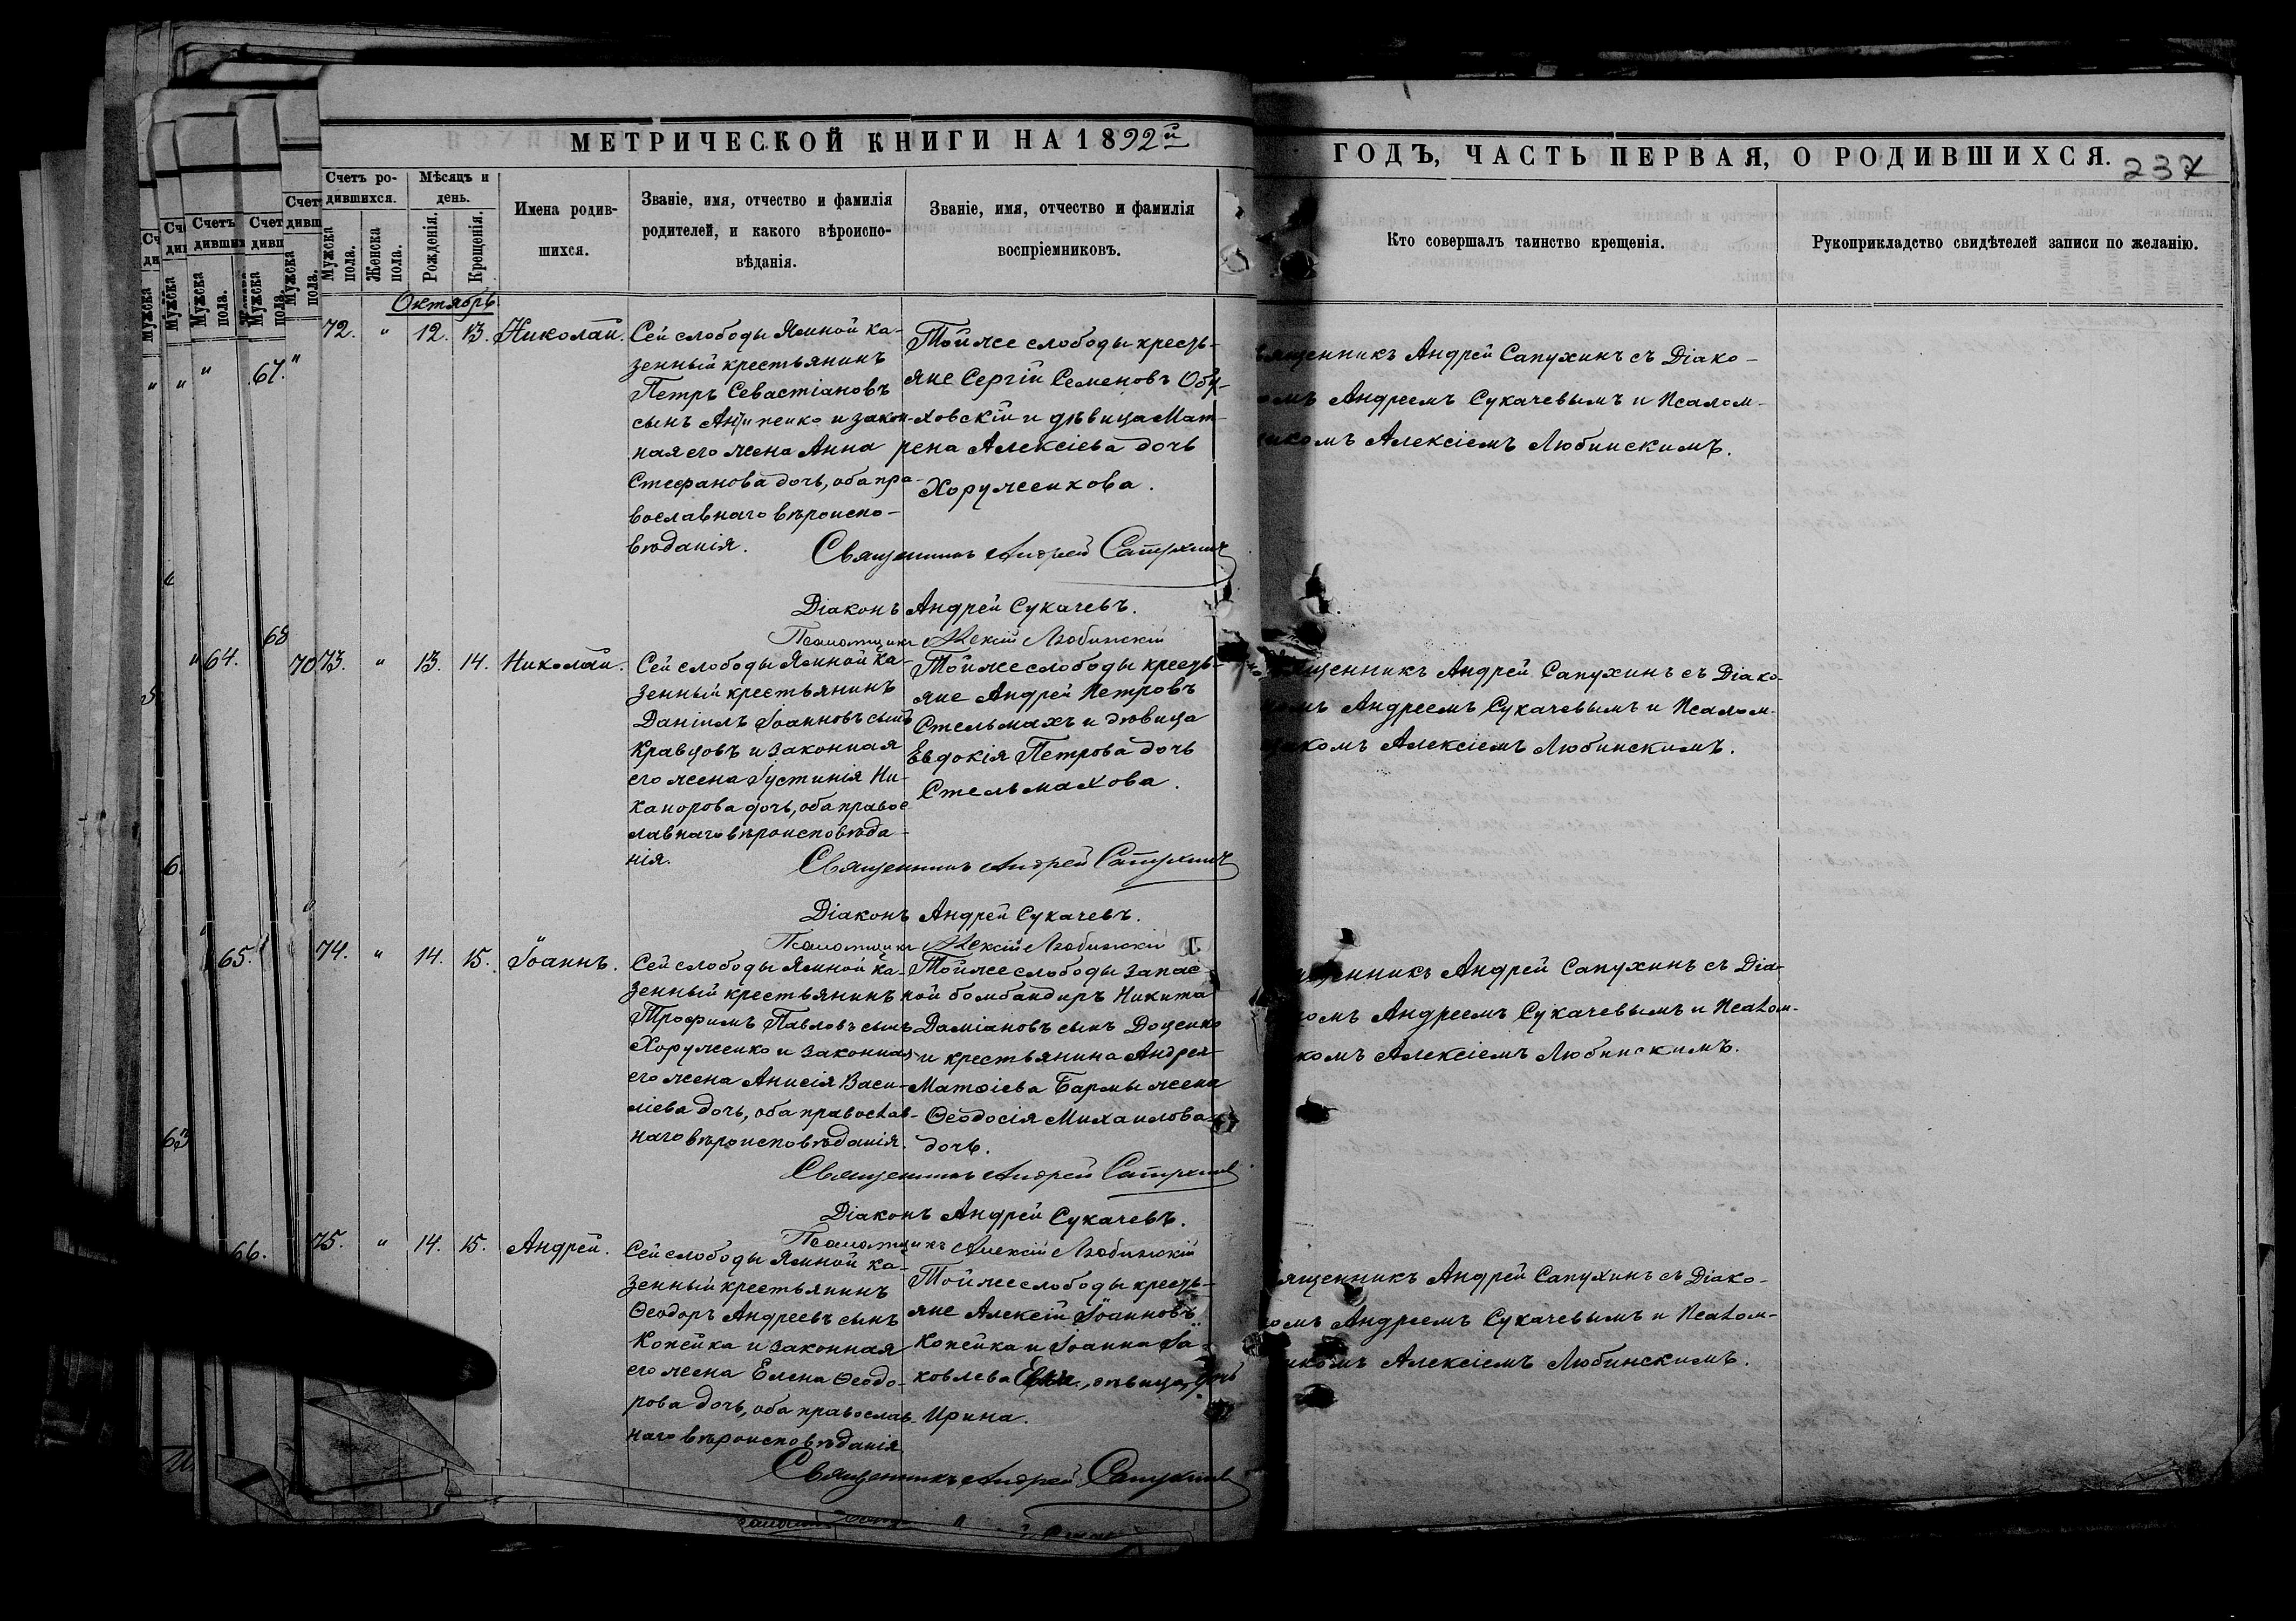 МЕТРИЧЕСКОЙ КНИГИ НА 1892й
ГОДЪ, ЧАСТЬ ПЕРВАЯ, О РОДИВШИХСЯ.
237
Счетъ ро-
дившихся.
Мужска пола.
Женска пола.
Мѣсяцъ и
день.
Рожденія.
Крещенія.
Имена родив-
шихся.
Званіе, имя, отчество и фамилія
родителей, и какого вѣроиспо-
вѣданія.
Званіе, имя, отчество и фамилія
воспріемниковъ.
Кто совершалъ таинство крещенія.
Рукоприкладство свидѣтелей записи по желанію.
Октябрь
72. " 12. 13. Николай.
Сей слободы Ямной ка-
зенный крестьянинъ
Петръ Севастіановъ
сынъ и закон-
ная его жена Анна
Стефанова дочь, оба пра-
вославнаго вѣроиспо-
вѣданія.
Тойже слободы кресть-
яне Сергій Семеновъ Обу-
ховскій и дѣвица Мат-
рена Алексіева дочь
Хоруженкова.
Священникъ Андрей Сапухинъ съ Діако-
омъ Андреемъ Сукачевымъ и Псалом-
икомъ Алексіемъ Любинскимъ.
Священникъ Андрей Сапухинъ
Діаконъ Андрей Сукачевъ.
Псаломщикъ Алексій Любинскій
73. " 13. 14. Николай.
Сей слободы Ямной ка-
зенный крестьянинъ
Даніилъ Іоанновъ сынъ
Кравцовъ и законная
его жена Іустинія Ни-
канорова дочь, оба правос-
лавнаго вѣроисповѣда-
нія.
Тойже слободы кресть-
яне Андрей Петровъ
Стельмахъ и дѣвица
Евдокія Петрова дочь
Стельмахова.
щенникъ Андрей Сапухинъ съ Діако-
омъ Андреемъ Сукачевымъ и Псалом-
икомъ Алексіемъ Любинскимъ.
Священникъ Андрей Сапухинъ
Діаконъ Андрей Сукачевъ.
Псаломщикъ Алексій Любинскій
74. " 14. 15. Іоаннъ.
Сей слободы Ямной ка-
зенный крестьянинъ
Трофимъ Павловъ сынъ
Хоруженко и законная
его жена Анисія Васи-
ліева дочь, оба православ-
наго вѣроисповѣданія.
Тойже слободы запас-
ной бомбандиръ Никита
Даміановъ сынъ Доценко
и крестьянина Андрея
Матѳіева Бармы жена
Ѳеодосія Михаилова
дочь.
щенникъ Андрей Сапухинъ съ Діа-
омъ Андреемъ Сукачевымъ и Псалом-
комъ Алексіемъ Любинскимъ.
Священникъ Андрей Сапухинъ
Діаконъ Андрей Сукачевъ.
Псаломщикъ Алексій Любинскій
75. " 14. 15. Андрей.
Сей слободы Ямной ка-
зенный крестьянинъ
Ѳеодоръ Андреевъ сынъ
Копейка и законная
его жена Елена Ѳеодо-
рова дочь, оба православ-
наго вѣроисповѣданія
Тойже слободы кресть-
яне Алексій Іоанновъ
Копейка и Іоанна Іа-
ковлева дѣвица, дочь
Ирина.
ященникъ Андрей Сапухинъ съ Діако-
омъ Андреемъ Сукачевымъ и Псалом-
икомъ Алексіемъ Любинскимъ.
Священникъ Андрей Сапухинъ
67.
68
64.
70
65.
66.